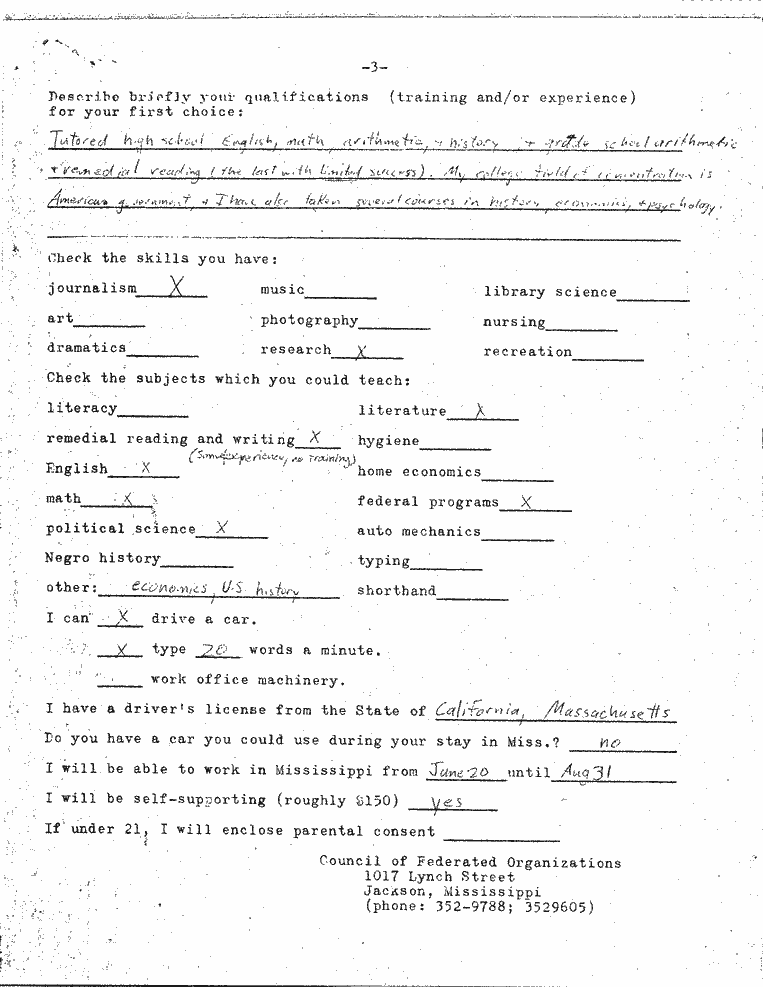 -3-
Describe briefly your qualifications (training and/or experience)
for your first choice:
Tutored high school English, math, arithmetic, + history + grade school arithmetic
+ remedial reading (the last with limited success). My college field of concentration is
American government, + I have also taken several courses in history, economics, + psychology.
Check the skills you have:
journalism X music library science
art photography nursing
dramatics research X recreation
Check the subjects which you could teach:
literacy literature X
remedial reading and writing X hygiene
(Some experience, no training)
English X home economics
math X federal programs X
political science X auto mechanics
Negro history typing
other: economics, U.S. history shorthand
I can X drive a car.
X type 20 words a minute.
work office machinery.
I have a driver's license from the State of California, Massachusetts
Do you have a car you could use during your stay in Miss.? no
I will be able to work in Mississippi from June 20 until Aug 31
I will be self-supporting (roughly $150) yes
If under 21, I will enclose parental consent
Council of Federated Organizations
1017 Lynch Street
Jackson, Mississippi
(phone: 352-9788; 3529605)